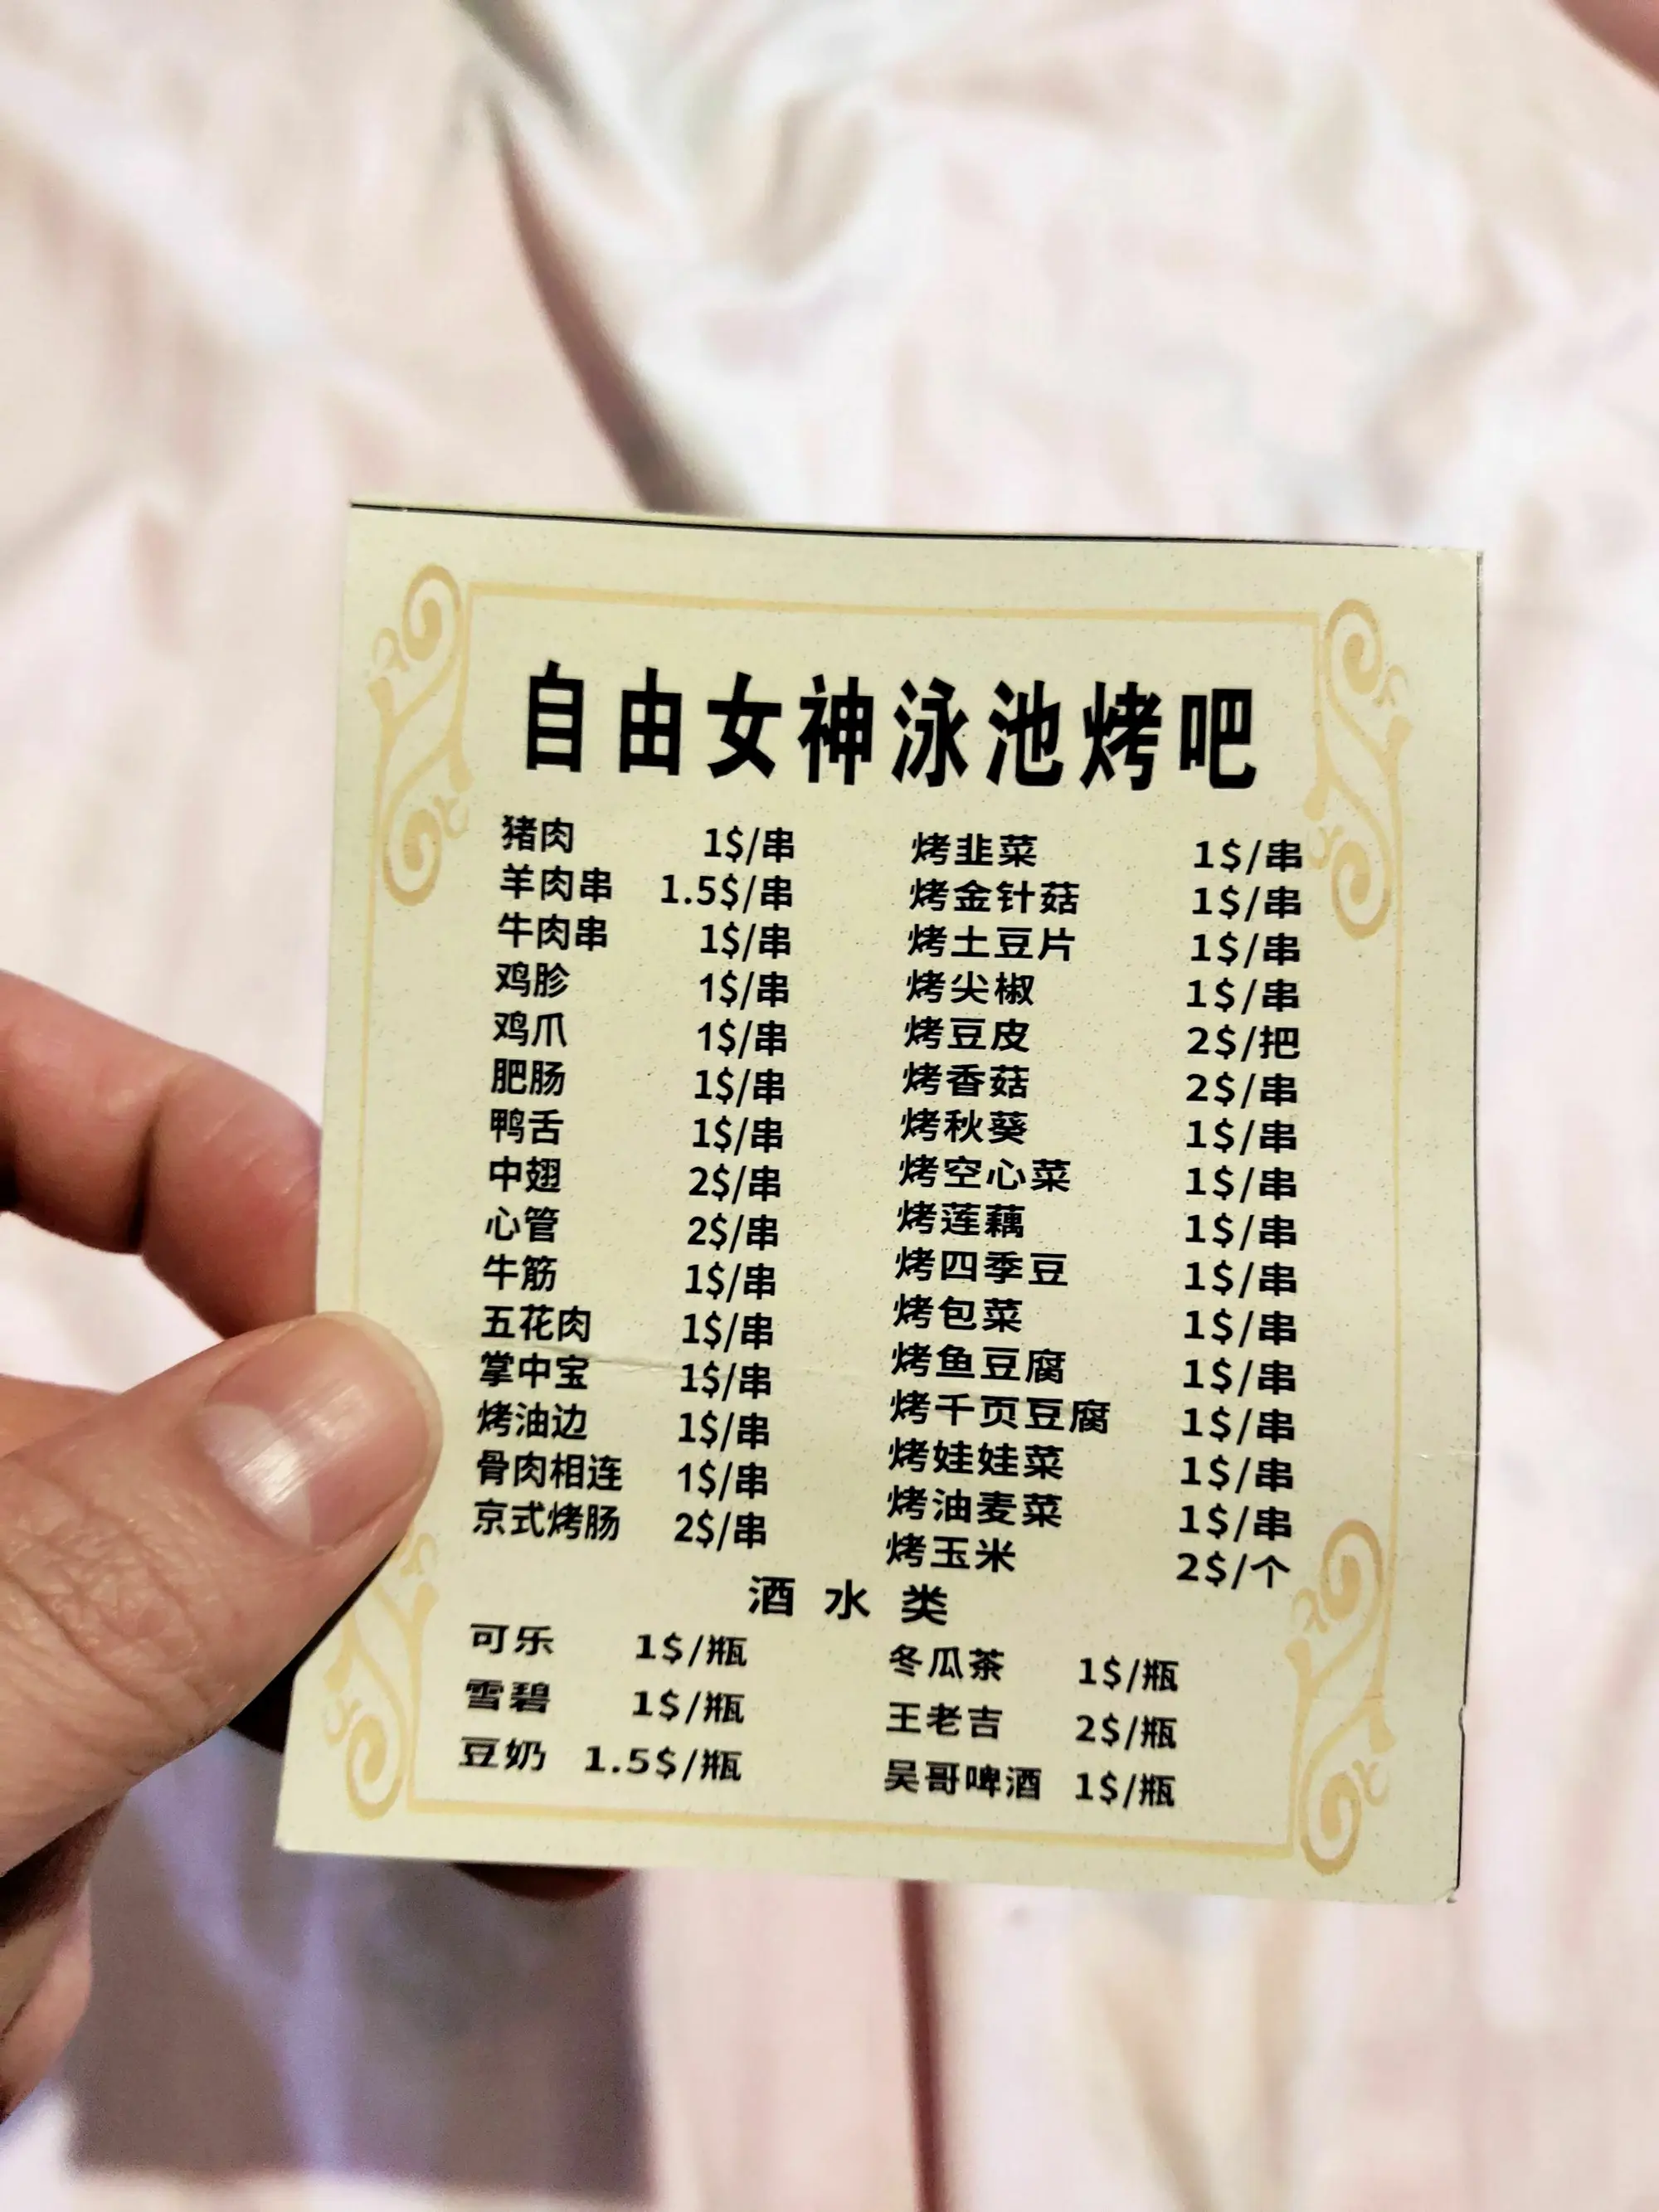 自由女神泳池烤吧
猪肉 1$/串
羊肉串 1.5$/串
牛肉串 1$/串
鸡胗 1$/串
鸡爪 1$/串
肥肠 1$/串
鸭舌 1$/串
中翅 2$/串
心管 2$/串
牛筋 1$/串
五花肉 1$/串
掌中宝 1$/串
烤油边 1$/串
骨肉相连 1$/串
京式烤肠 2$/串
烤韭菜 1$/串
烤金针菇 1$/串
烤土豆片 1$/串
烤尖椒 1$/串
烤豆皮 2$/把
烤香菇 2$/串
烤秋葵 1$/串
烤空心菜 1$/串
烤莲藕 1$/串
烤四季豆 1$/串
烤包菜 1$/串
烤鱼豆腐 1$/串
烤千页豆腐 1$/串
烤娃娃菜 1$/串
烤油麦菜 1$/串
烤玉米 2$/个
酒水类
可乐 1$/瓶
雪碧 1$/瓶
豆奶 1.5$/瓶
冬瓜茶 1$/瓶
王老吉 2$/瓶
吴哥啤酒 1$/瓶